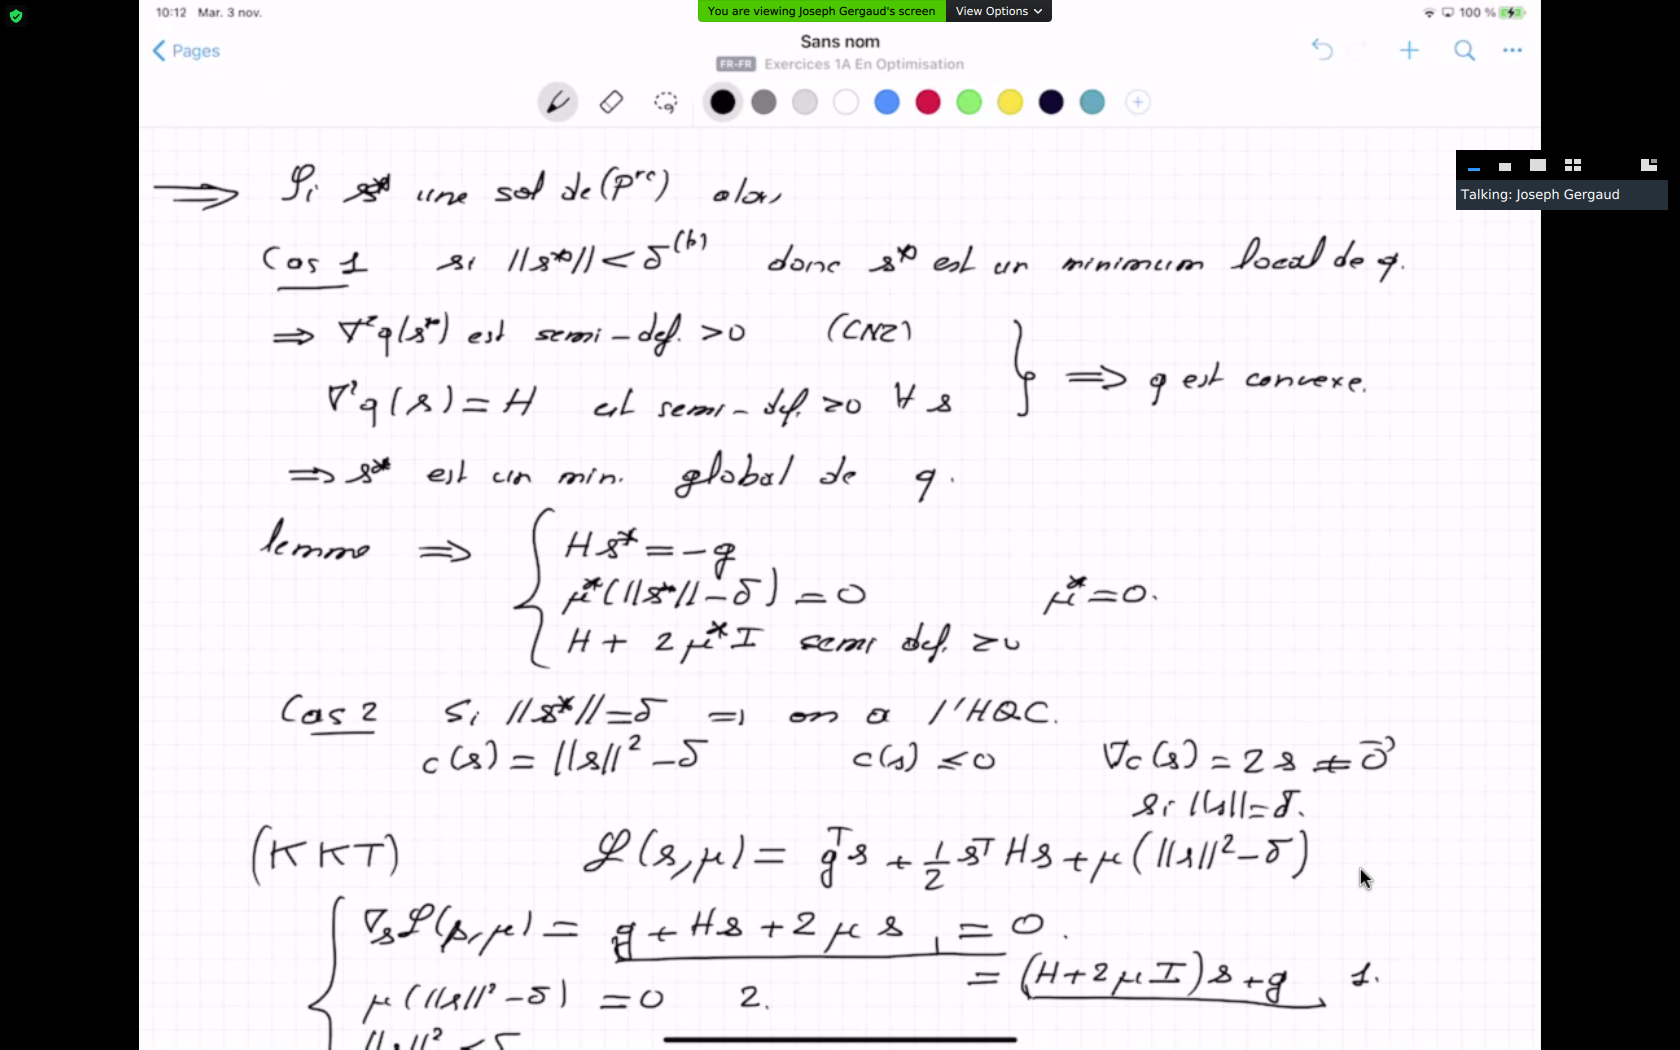 10:12 Mar. 3 nov.
You are viewing Joseph Gergaud's screen View Options
100 %
Pages
Sans nom
FR-FR Exercices 1A En Optimisation
Talking: Joseph Gergaud
⟹ Si s* une sol de (P^rc) alors
Cas 1 si ||s*|| < δ^(k) donc s* est un minimum local de q.
⇒ ∇²q(s*) est semi-def. >0 (CN2)
∇²q(s) = H est semi-def. ≥0 ∀ s } ⟹ q est convexe.
⇒ s* est un min. global de q.
lemme ⟹ { H s* = -g
μ*(||s*|| - δ) = 0 μ* = 0.
H + 2 μ* I semi def. ≥0
Cas 2 Si ||s*|| = δ ⇒ on a l'HQC.
c(s) = ||s||² - δ c(s) ≤ 0 ∇c(s) = 2 s ≠ 0⃗
si ||s|| = δ.
(KKT) ℒ(s,μ) = gᵀs + 1/2 sᵀHs + μ(||s||² - δ)
{ ∇ₛℒ(s,μ) = g + Hs + 2 μ s = 0.
= (H+2μI)s + g 1.
μ(||s||² - δ) = 0 2.
||s||² ≤ δ